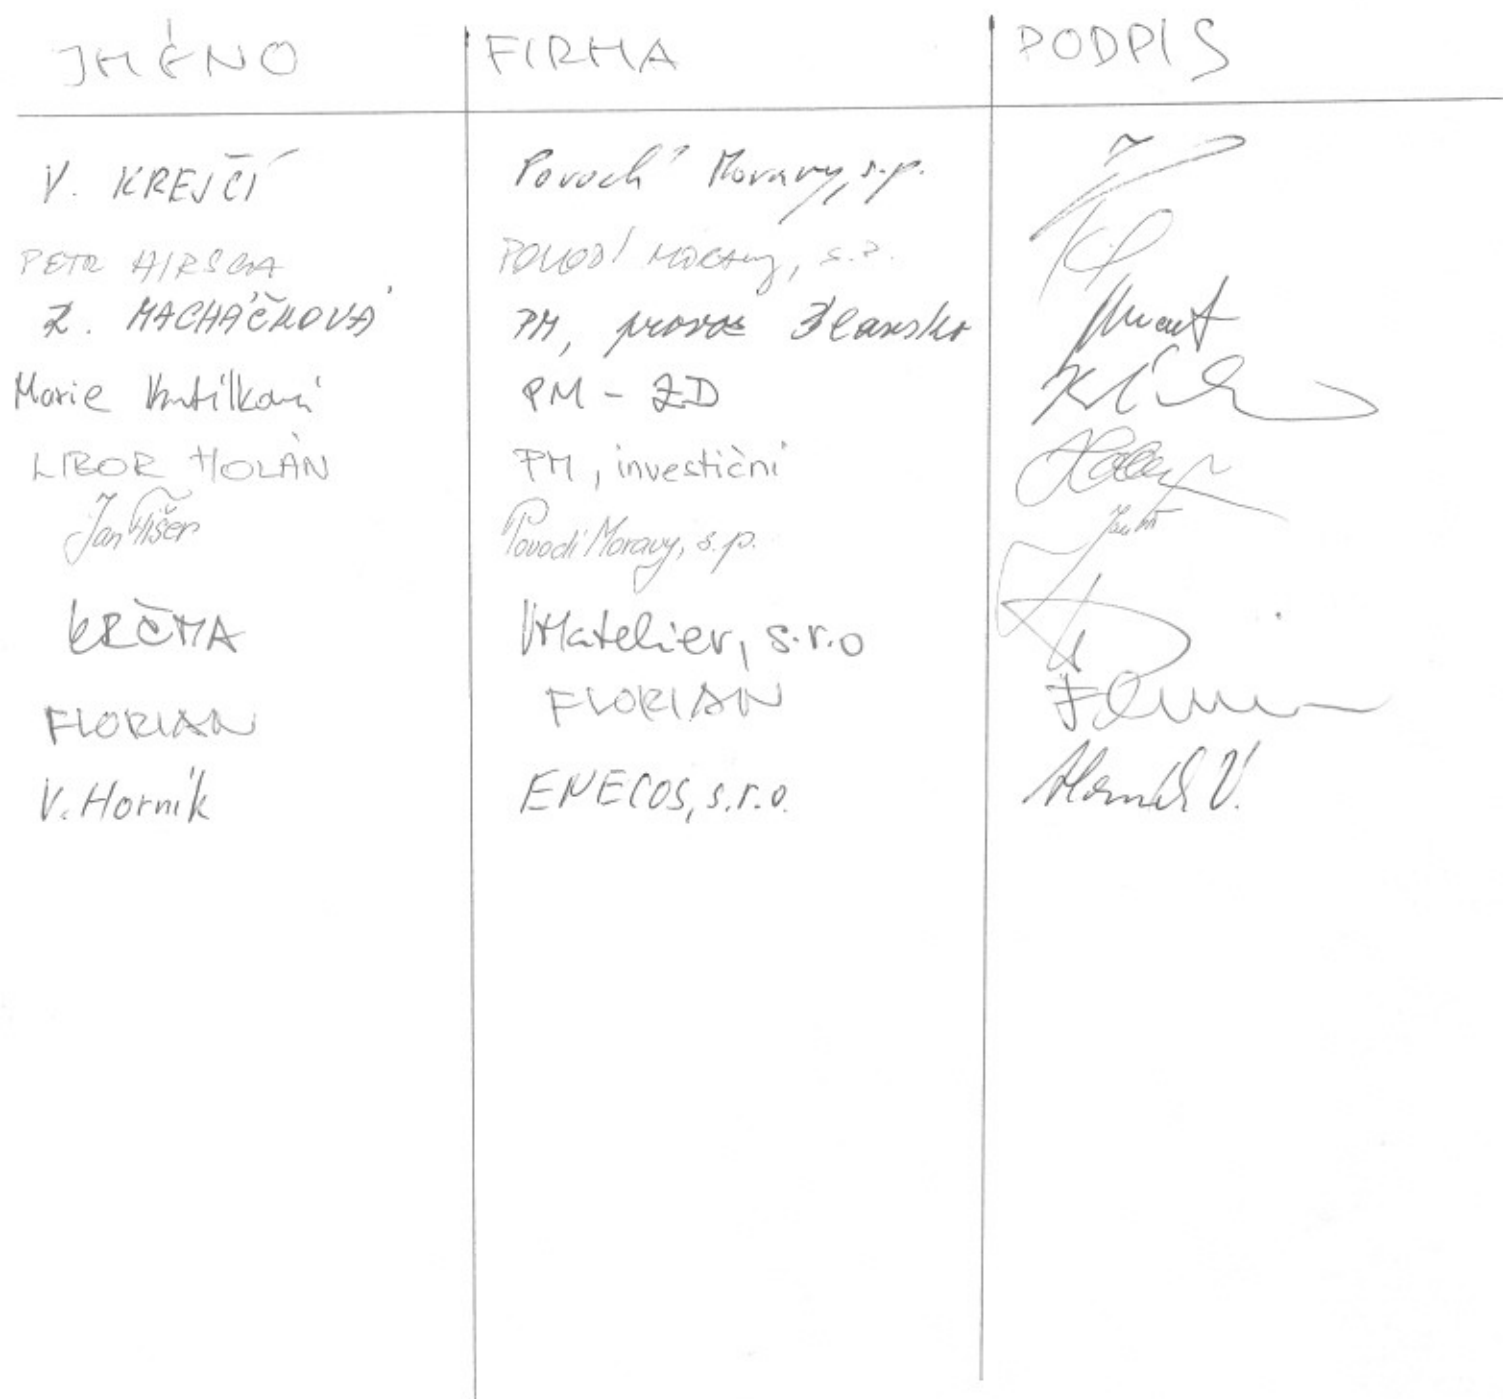 JMÉNO FIRMA PODPIS
V. KREJČÍ Povodí Moravy, s.p.
PETR HIRSCHA POVODÍ MORAVY, s.p.
Z. MACHÁČKOVÁ PM, provoz Blansko
Marie Kutílková PM - ZD
LIBOR HOLÁN PM, investiční
Jan Fišer Povodí Moravy, s.p.
KRČMA VHatelier, s.r.o
FLORIAN FLORIAN
V. Horník ENECOS, s.r.o. Horník V.